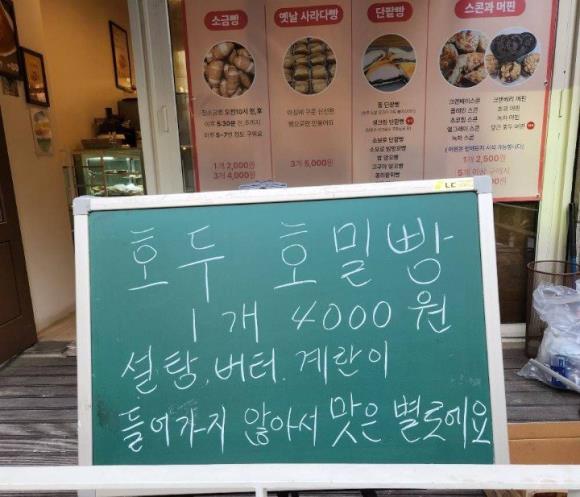 소금빵
옛날 사라다빵
단팥빵
스콘과 머핀
1개 2,000원
3개 4,000원
3개 5,000원
소보로 단팥빵
밤 앙꼬빵
크랜베리스콘
플레인 스콘
초코칩 스콘
얼그레이 스콘
녹차 스콘
크랜베리 머핀
초코 머핀
녹차 머핀
당근 호두 머핀
1개 2,500원
LC
호두 호밀빵
1개 4000원
설탕, 버터, 계란이
들어가지 않아서 맛은 별로에요